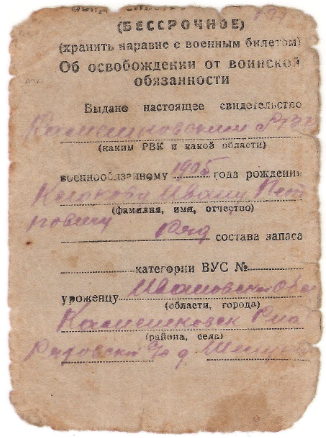 (БЕССРОЧНОЕ)
(хранить наравне с военным билетом)
Об освобождении от воинской
обязанности
Выдано настоящее свидетельство
Камешковским
(каким РВК и какой области)
военнообязанному 1905 года рождения
Ивану Пет
ровичу
(фамилия, имя, отчество)
Ряд состава запаса
категории ВУС №
уроженцу Ивановской Обл
(области, города)
Камешковск
(района, села)